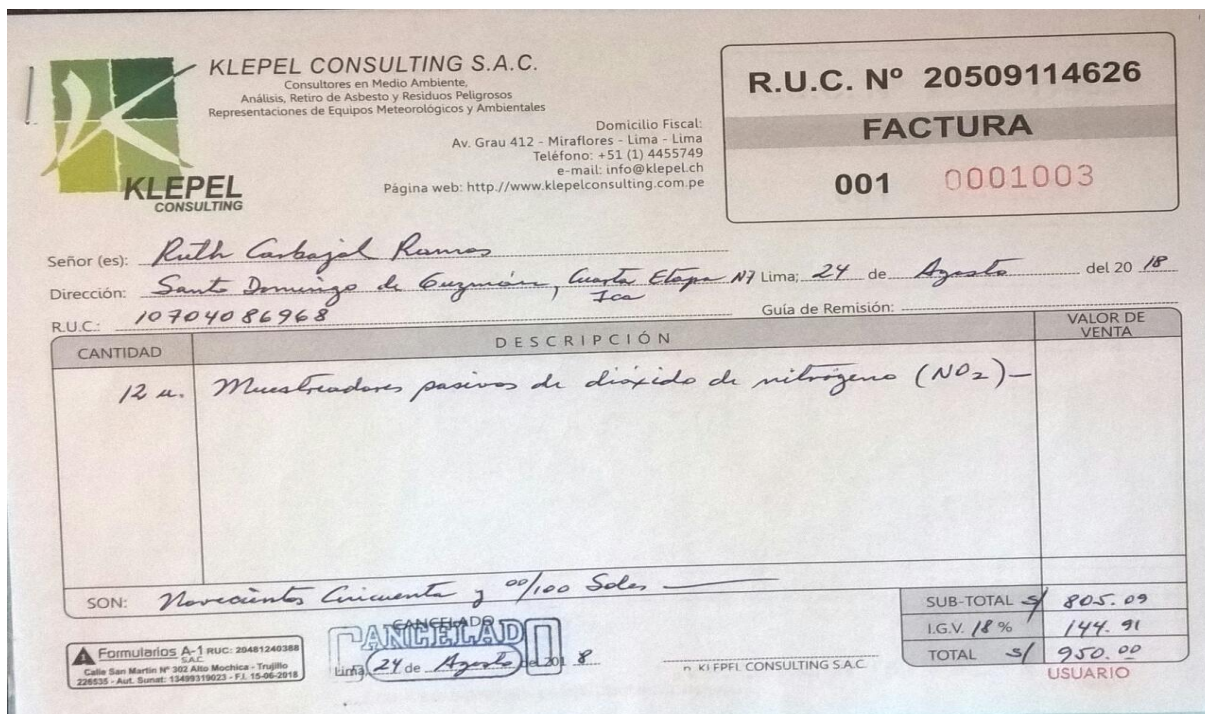 KLEPEL CONSULTING S.A.C.
Consultores en Medio Ambiente,
Análisis, Retiro de Asbesto y Residuos Peligrosos
Representaciones de Equipos Meteorológicos y Ambientales
Domicilio Fiscal:
Av. Grau 412 - Miraflores - Lima - Lima
Teléfono: +51 (1) 4455749
e-mail: info@klepel.ch
Página web: http.//www.klepelconsulting.com.pe
KLEPEL
CONSULTING
R.U.C. Nº 20509114626
FACTURA
001 0001003
Señor (es): Ruth Carbajal Ramos
Dirección: Santo Domingo de Guzmán, Cuarta Etapa N7 Lima; 24 de Agosto del 20 18
Ica
R.U.C.: 10704086968 Guía de Remisión:
CANTIDAD DESCRIPCIÓN VALOR DE VENTA
12 u. Muestreadores pasivos de dióxido de nitrógeno (NO2)-
SON: Novecientos Cincuenta y 00/100 Soles
SUB-TOTAL S/ 805.09
I.G.V. 18 % 144.91
TOTAL S/ 950.00
USUARIO
Formularios A-1 RUC: 20481240388
S.A.C.
Calle San Martin Nº 302 Alto Mochica - Trujillo
226535 - Aut. Sunat: 13499319023 - F.I. 15-06-2018
CANCELADO
CANCELADO
Lima, 24 de Agosto de 201 8
p. KLEPEL CONSULTING S.A.C.